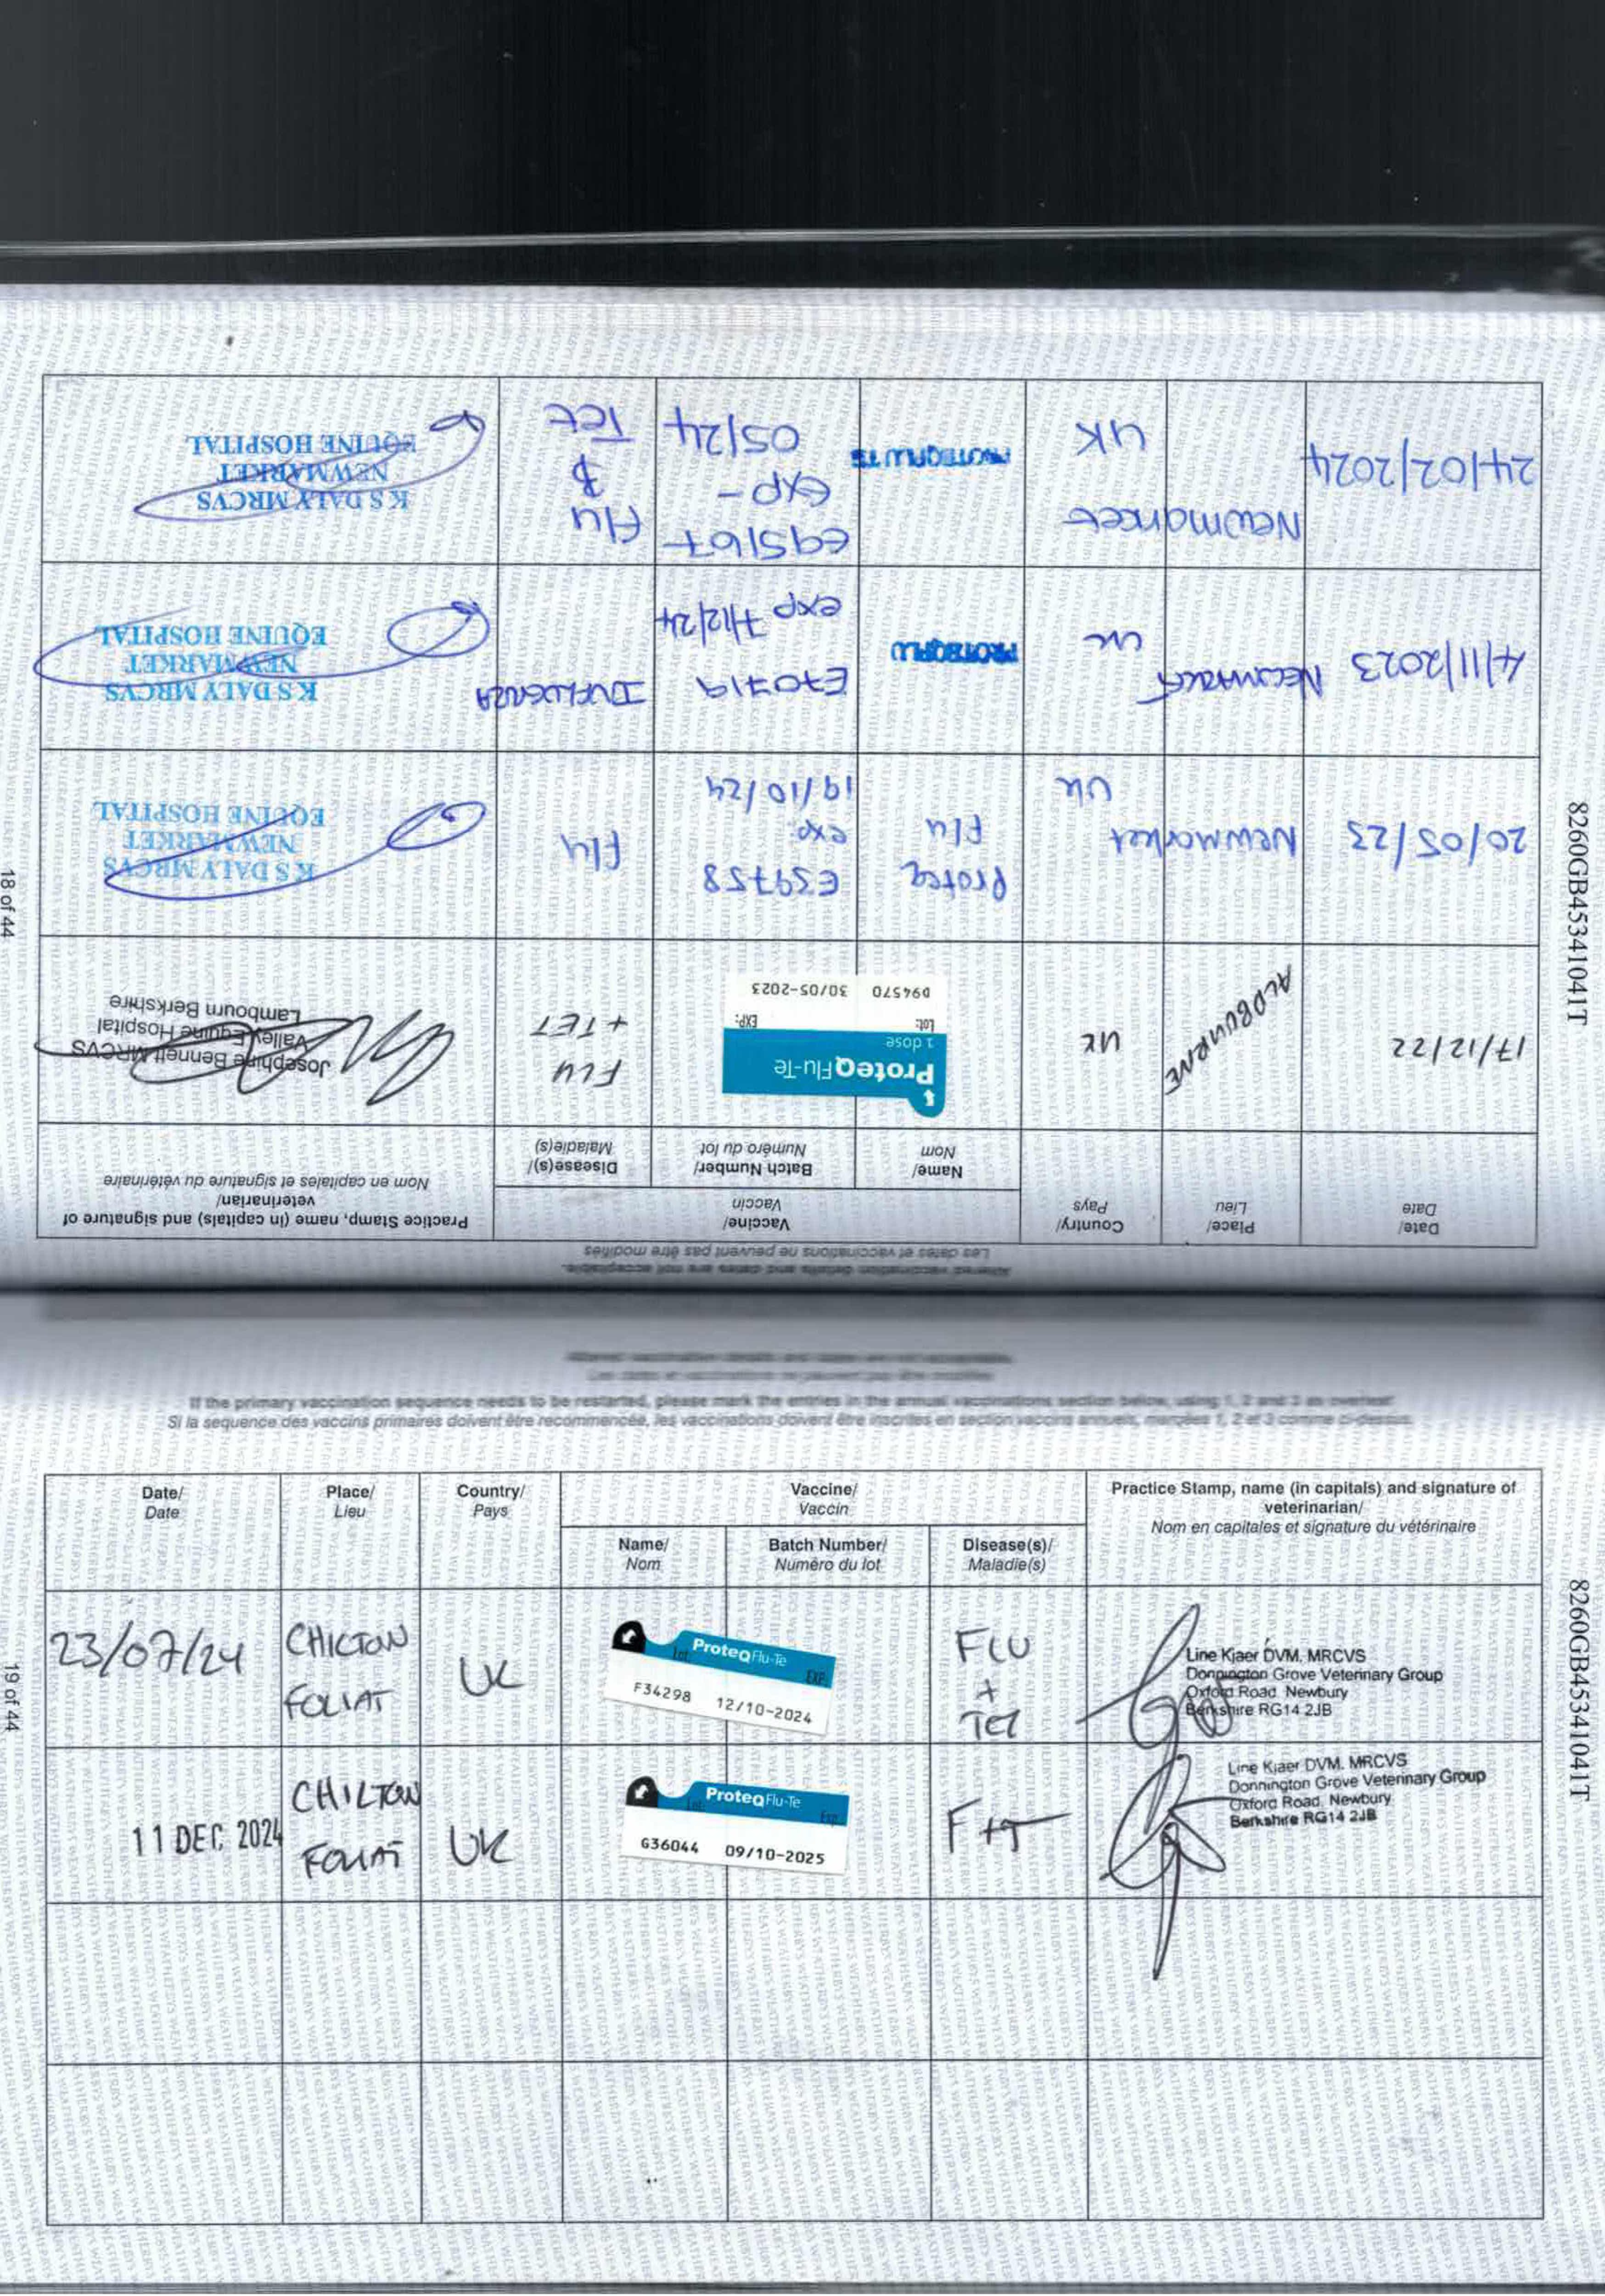 8260GB45341041T
18 of 44
Altered vaccination details and dates are not acceptable.
Les dates et vaccinations ne peuvent pas être modifiés
Date/
Date
Place/
Lieu
Country/
Pays
Vaccine/
Vaccin
Name/
Nom
Batch Number/
Numéro du lot
Disease(s)/
Maladie(s)
Practice Stamp, name (in capitals) and signature of
veterinarian/
Nom en capitales et signature du vétérinaire
17/12/22
ALDBOURNE
UK
ProteqFlu-Te
1 dose
Lot: EXP:
D94570 30/05-2023
FLU
+ TET
Josephine Bennett MRCVS
Valley Equine Hospital
Lambourn Berkshire
20/05/23
Newmarket
UK
Proteq
Flu
E59758
exp:
19/10/24
Flu
K S DALY MRCVS
NEWMARKET
EQUINE HOSPITAL
4/11/2023
Newmarket
UK
PROTEQFLU
E70719
exp 7/12/24
INFLUENZA
K S DALY MRCVS
NEWMARKET
EQUINE HOSPITAL
24/02/2024
Newmarket
UK
PROTEQFLU TE
EXP-
05/24
Flu
&
Tet
K S DALY MRCVS
NEWMARKET
EQUINE HOSPITAL
Altered vaccination details and dates are not acceptable.
Les dates et vaccinations ne peuvent pas être modifiés
If the primary vaccination sequence needs to be restarted, please mark the entries in the annual vaccinations section below, using 1, 2 and 3 as overleaf
Si la sequence des vaccins primaires doivent être recommencée, les vaccinations doivent être inscrites en section vaccins annuels, marquées 1, 2 et 3 comme ci-dessus.
Date/
Date
Place/
Lieu
Country/
Pays
Vaccine/
Vaccin
Name/
Nom
Batch Number/
Numéro du lot
Disease(s)/
Maladie(s)
Practice Stamp, name (in capitals) and signature of
veterinarian/
Nom en capitales et signature du vétérinaire
23/07/24
CHILTON
FOLIAT
UK
ProteqFlu-Te
Lot: EXP:
F34298 12/10-2024
FLU
+
TET
Line Kjaer DVM, MRCVS
Donnington Grove Veterinary Group
Oxford Road, Newbury
Berkshire RG14 2JB
11 DEC 2024
CHILTON
FOLIAT
UK
ProteqFlu-Te
Lot: Exp:
G36044 09/10-2025
F+T
Line Kjaer DVM. MRCVS
Donnington Grove Veterinary Group
Oxford Road, Newbury
Berkshire RG14 2JB
8260GB45341041T
19 of 44